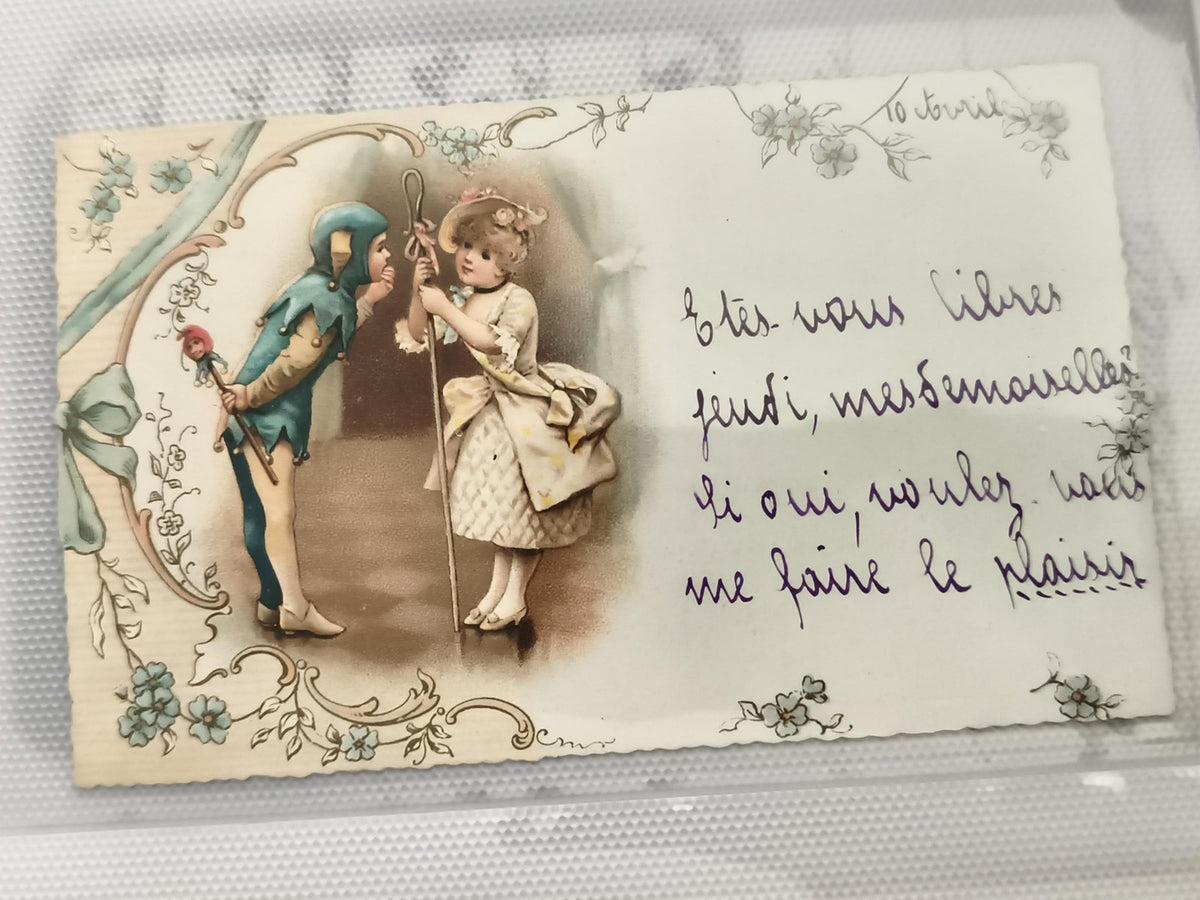 10 Avril
Etes-vous libres
jeudi, mesdemoiselles?
Si oui, voulez-vous
me faire le plaisir